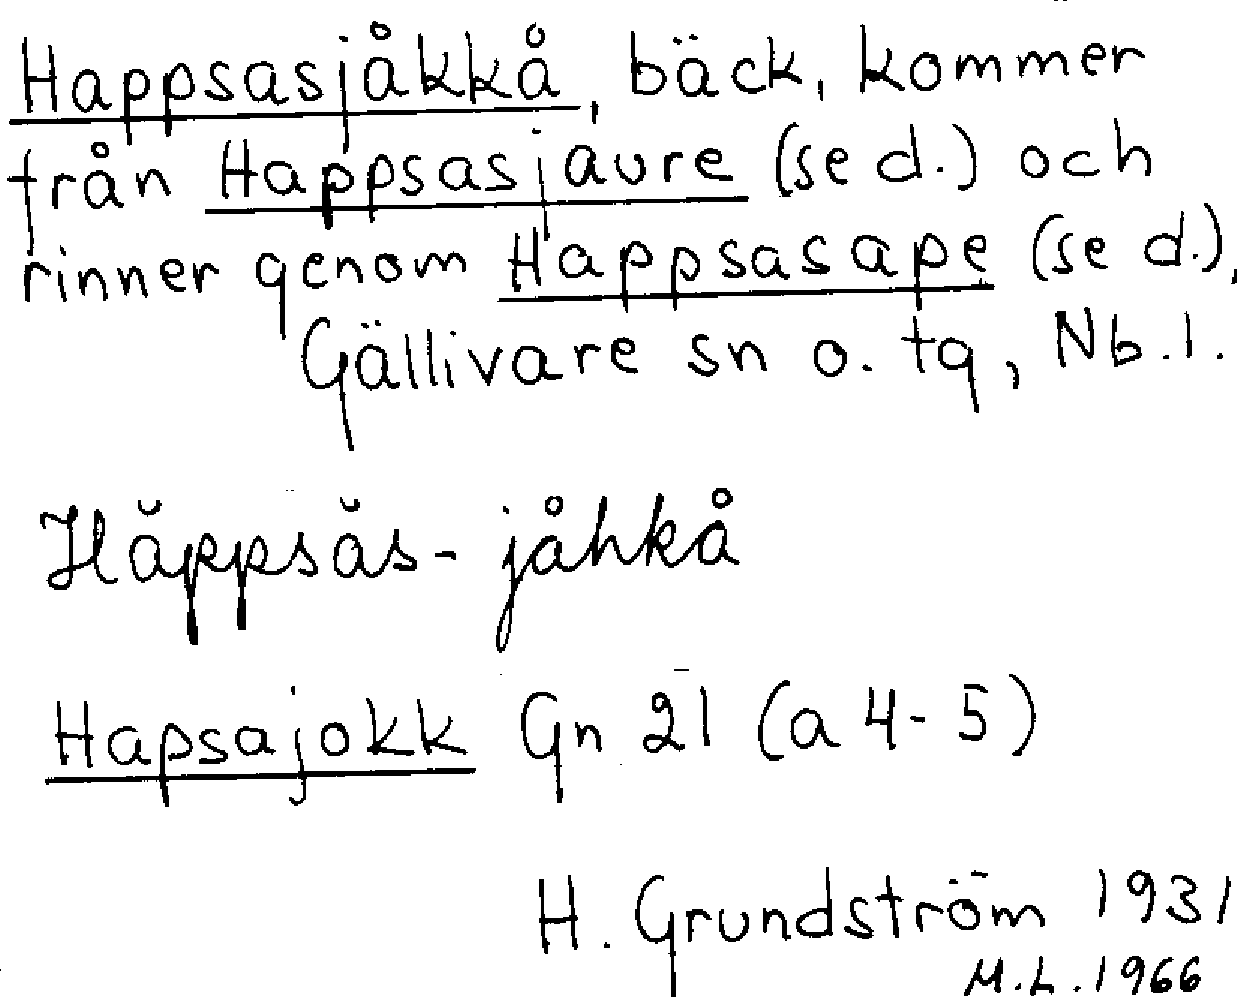 Happsasjåkkå, bäck, kommer
från Happsasjaure (se d.) och
rinner genom Happsasape (se d.),
Gällivare sn o. tg, Nb.l.
Hăppsăs-jåhkå
Hapsajokk Gn 21 (a 4-5)
H. Grundström 1931
M.L. 1966